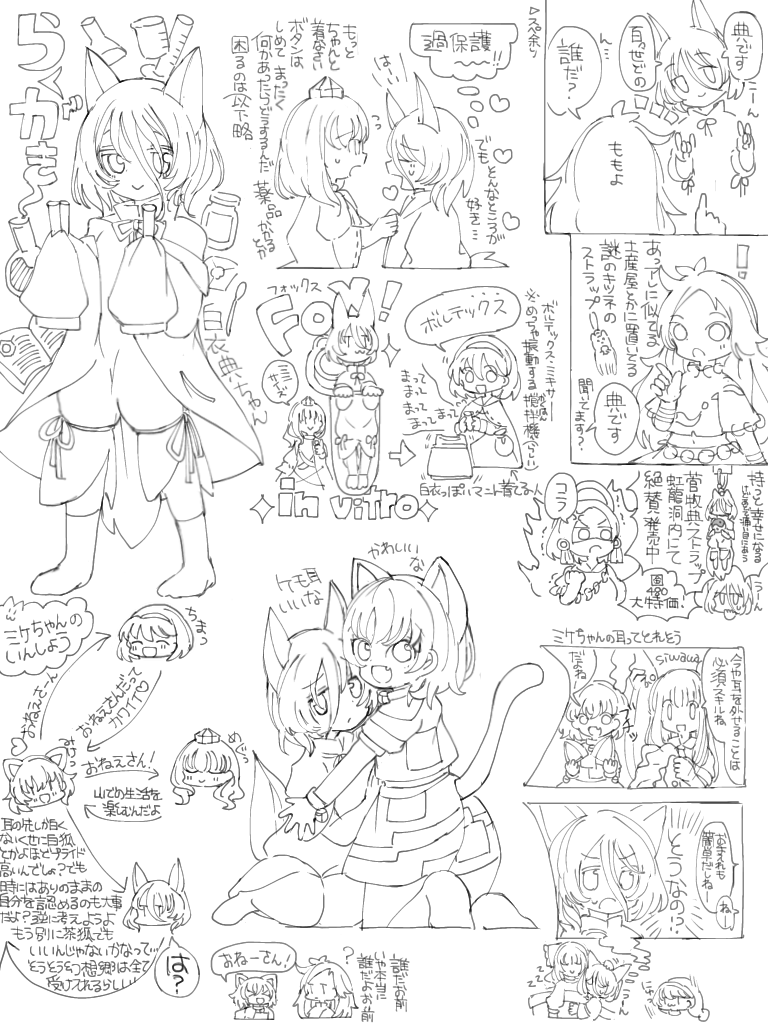 らくがき
白衣典ちゃん
もっと
ちゃんと
着なさい
ボタンは
しめて まったく
何かあったらどうするんだ 薬品かかるとか
困るのは以下略
過保護
〰!!
はーい
でもとんなところが
好き…
▷スペ余り
典です
百っせどの
こーん
ん…
誰だ?
ももよ
!
あっアレに似てる
土産屋とかに置いてる
謎のキツネの
ストラップ
典です
聞いてます?
フォックス
FoX!
ミミ
サーズ
in vitro
ボルテックス
※ボルテックス・ミキサー
めっちゃ振動する撹拌機
まって
まって
まって
まって
まって
白衣っぽいマント着てる〜ん
持つと幸せになる
菅牧典ストラップ
虹龍洞内にて
絶賛発売中
コラ
大特価!
うーん
ミケちゃんの
いんしょう
ちまっ
おねえさーん
おねえさんだって
カワイイ♡
みけっ
おねえさん!
山での生活を
楽しむんだよ
めぐっ
耳の先しか白く
ないくせに白狐
とかよほどプライド
高いんでしょ?でも
時にはありのままの
自分を認めるのも大事
だよ?逆に考えようよ
もう別に茶狐でも
いいんじゃないかなって…
とうとうこの幻想郷は全て
受け入れるらしい!
は?
ケモ耳
いいな
かわいい
な
おねーさん!
?
誰だお前
いや本当に
誰だよお前
ミケちゃんの耳ってとれそう
だよね
siwawa
今や耳を外せることは
必須スキルね
お主それも
簡単だしねー
ねー
とうなの!?
zzz
うーん
にゅっ